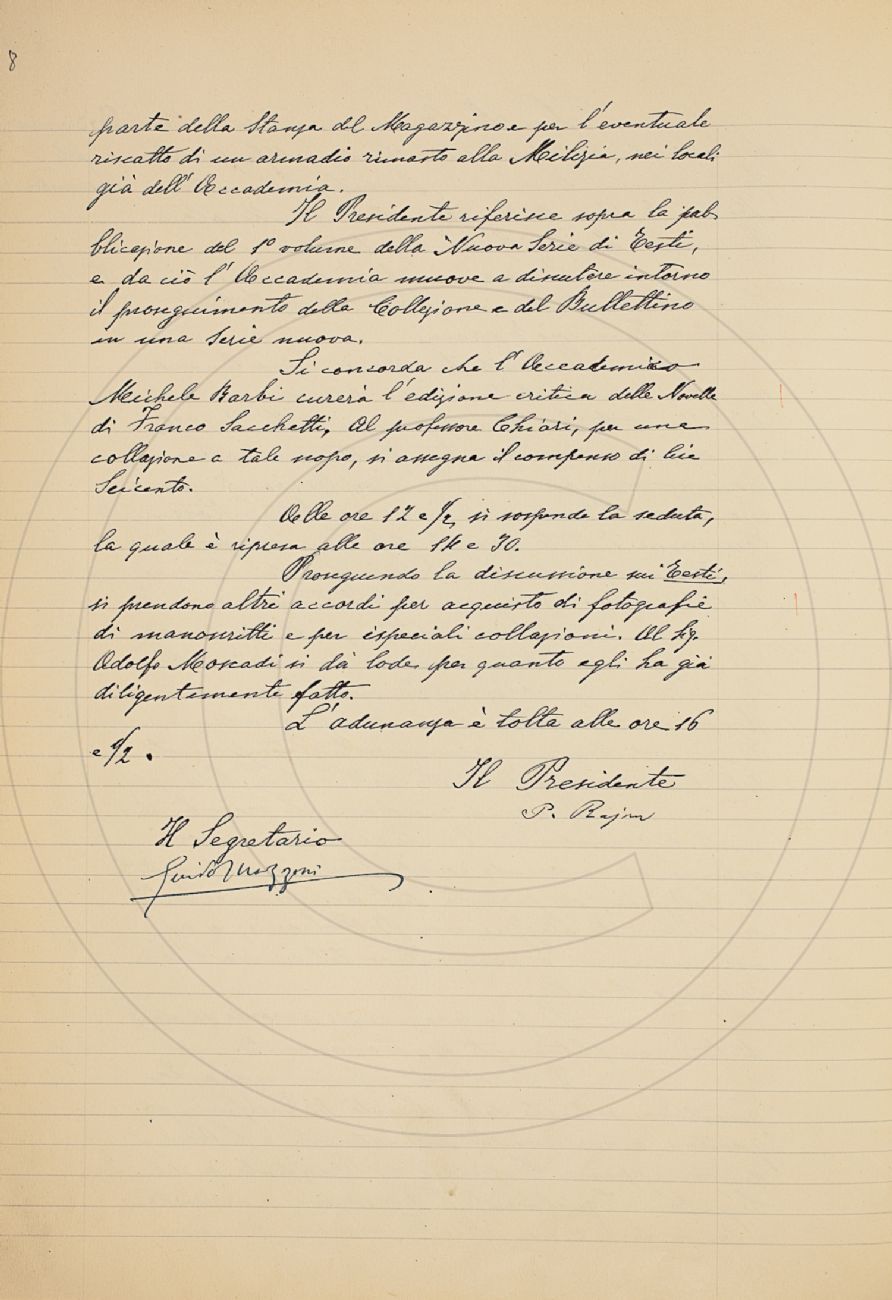 8
parte della Stanza del Magazzino e per l'eventuale
riscatto di un armadio rimasto alla Milizia, nei locali
già dell'Accademia.
Il Presidente riferisce sopra la pub
blicazione del 1º volume della Nuova Serie di Testi,
e da ciò l'Accademia muove a discutere intorno
il proseguimento della Collezione e del Bullettino
in una serie nuova.
Si concorda che l'Accademico
Michele Barbi curerà l'edizione critica delle Novelle
di Franco Sacchetti. Al professore Chiari, per una
collazione a tale uopo, si assegna il compenso di lire
Seicento.
Alle ore 12 e 1/2 si sospende la seduta,
la quale è ripresa alle ore 14 e 30.
Proseguendo la discussione sui Testi,
si prendono altri accordi per acquisto di fotografie
di manoscritti e per ispeciali collazioni. Al Sig.
Adolfo Moscadi si dà lode per quanto egli ha già
diligentemente fatto.
L'adunanza è tolta alle ore 16
e 1/2.
Il Presidente
P. Rajna
Il Segretario
Guido Mazzoni